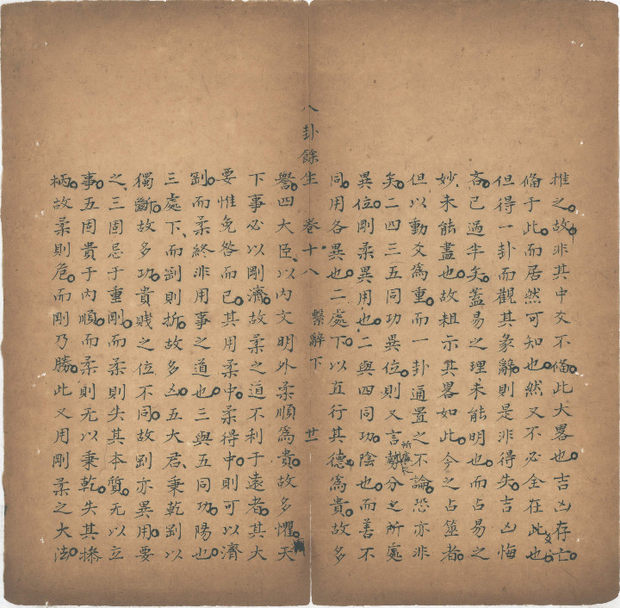 推之故非其中爻不備此大畧也吉凶存亡
備于此而居然可知也然又不必全在此也
但得一卦而觀其彖辭則是非得失吉凶悔
吝已過半矣蓋易之理未能明也而占易之
妙未能盡也故粗示其畧如此今之占筮者
但以動爻為重而一卦通置之不論恐亦非
矣二四三五同功異位則又言勢分之所處
異位剛柔異用也二與四同功陰也而善不
同用各異也二處下以直行其德為貴故多
八卦餘生 卷十八 繫辭下 廿
譽四大臣以內文明外柔順為貴故多懼天
下事必以剛濟故柔之道不利于遠者其大
要惟免咎而已其用柔中柔得中則可以濟
剛而柔終非用事之道也三與五同功陽也
三處下而剛則折故多凶五大君秉乾剛以
獨斷故多功貴賤之位不同故剛亦異用要
之三固忌于重剛而柔則失其本質无以立
事五固貴于內順而柔則无以秉乾失其操
柄故柔則危而剛乃勝此又用剛柔之大法